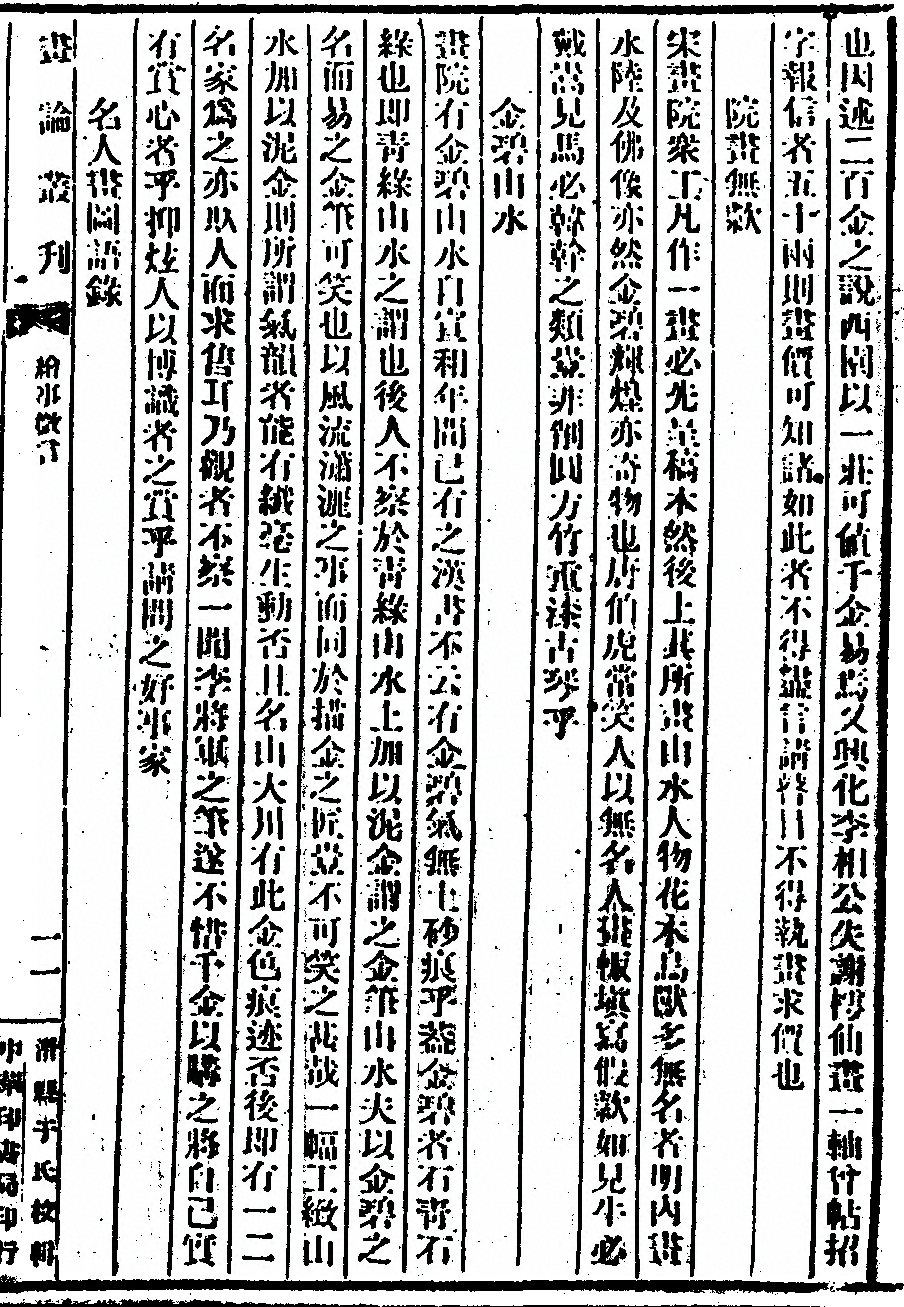 也因述二百金之說西園以一莊可値千金易焉又興化李相公失謝樗仙畫一軸付帖招
字報信者五十兩則畫價可知諸如此者不得盡言請啓目不得執畫求價也
院畫無款
宋畫院衆工凡作一畫必先呈稿本然後上其所畫山水人物花木鳥獸多無名者明內畫
水陸及佛像亦然金碧輝煌亦奇物也唐伯虎嘗笑人以無名人畫輒塡寫假款如見牛必
戴嵩見馬必韓幹之類豈非削圓方竹重漆古琴乎
金碧山水
畫院有金碧山水自宣和年間已有之漢書不云有金碧氣無土砂痕乎蓋金碧者石靑石
綠也即靑綠山水之謂也後人不察於靑綠山水上加以泥金謂之金筆山水夫以金碧之
名而易之金筆可笑也以風流瀟灑之事而同於描金之匠豈不可笑之甚哉一幅工緻山
水加以泥金則所謂氣韻者能有絨毫生動否且名山大川有此金色痕迹否後即有一二
名家爲之亦以人而求售耳乃觀者不察一聞李將軍之筆遂不惜千金以購之將自己實
有賞心者乎抑炫人以博識者之賞乎請問之好事家
名人畫圖語錄
畫論叢刊
繪事微言
一一
滑縣于氏校輯
中華印書局印行